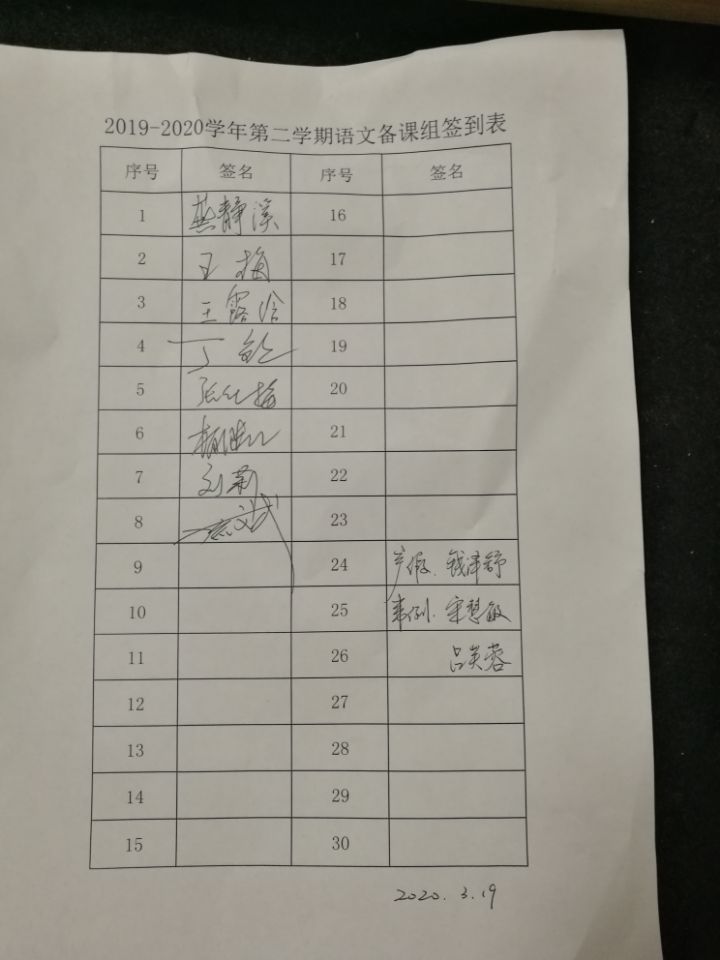 2019-2020学年第二学期语文备课组签到表
序号 签名 序号 签名
1 燕静溪 16
2 王梅 17
3 王露洽 18
4 丁 19
5 张红梅 20
6 21
7 刘莉 22
8 23
9 24 产假、钱泽舒
10 25 事假、宋慧敏
11 26 吕芙蓉
12 27
13 28
14 29
15 30
2020.3.19